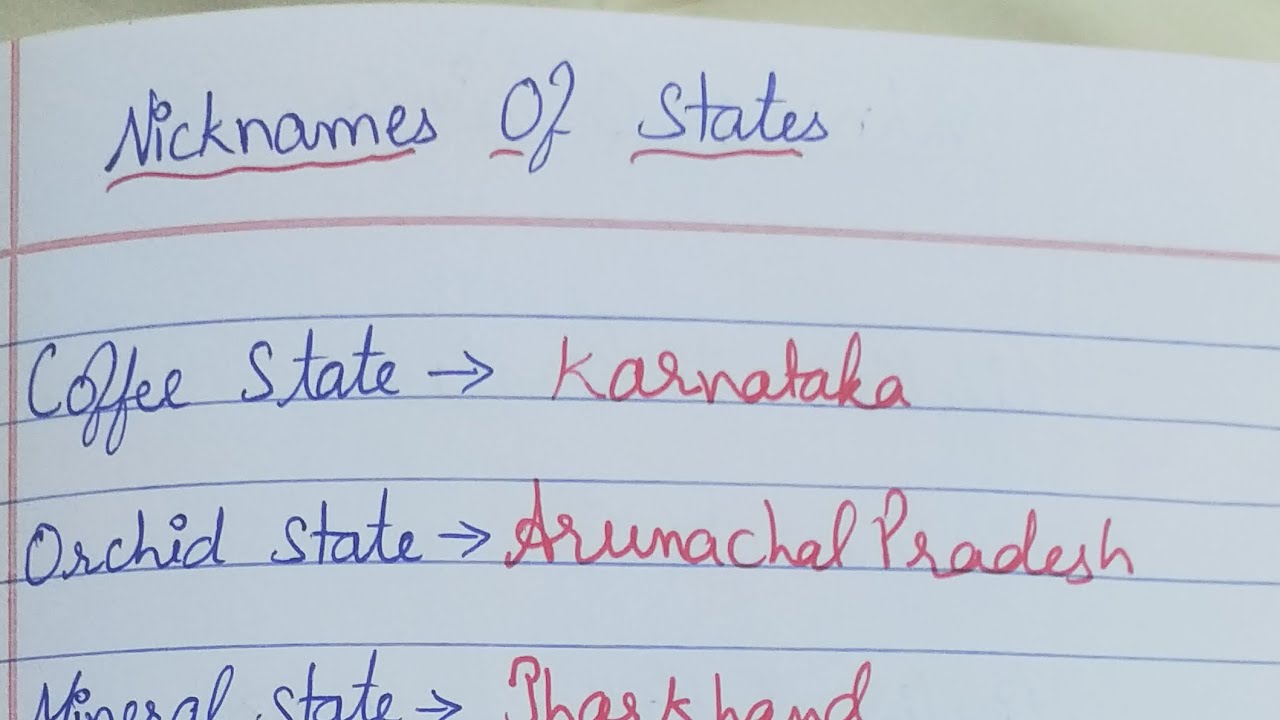 Nicknames Of States
Coffee State → Karnataka
Orchid State → Arunachal Pradesh
Mineral State → Jharkhand